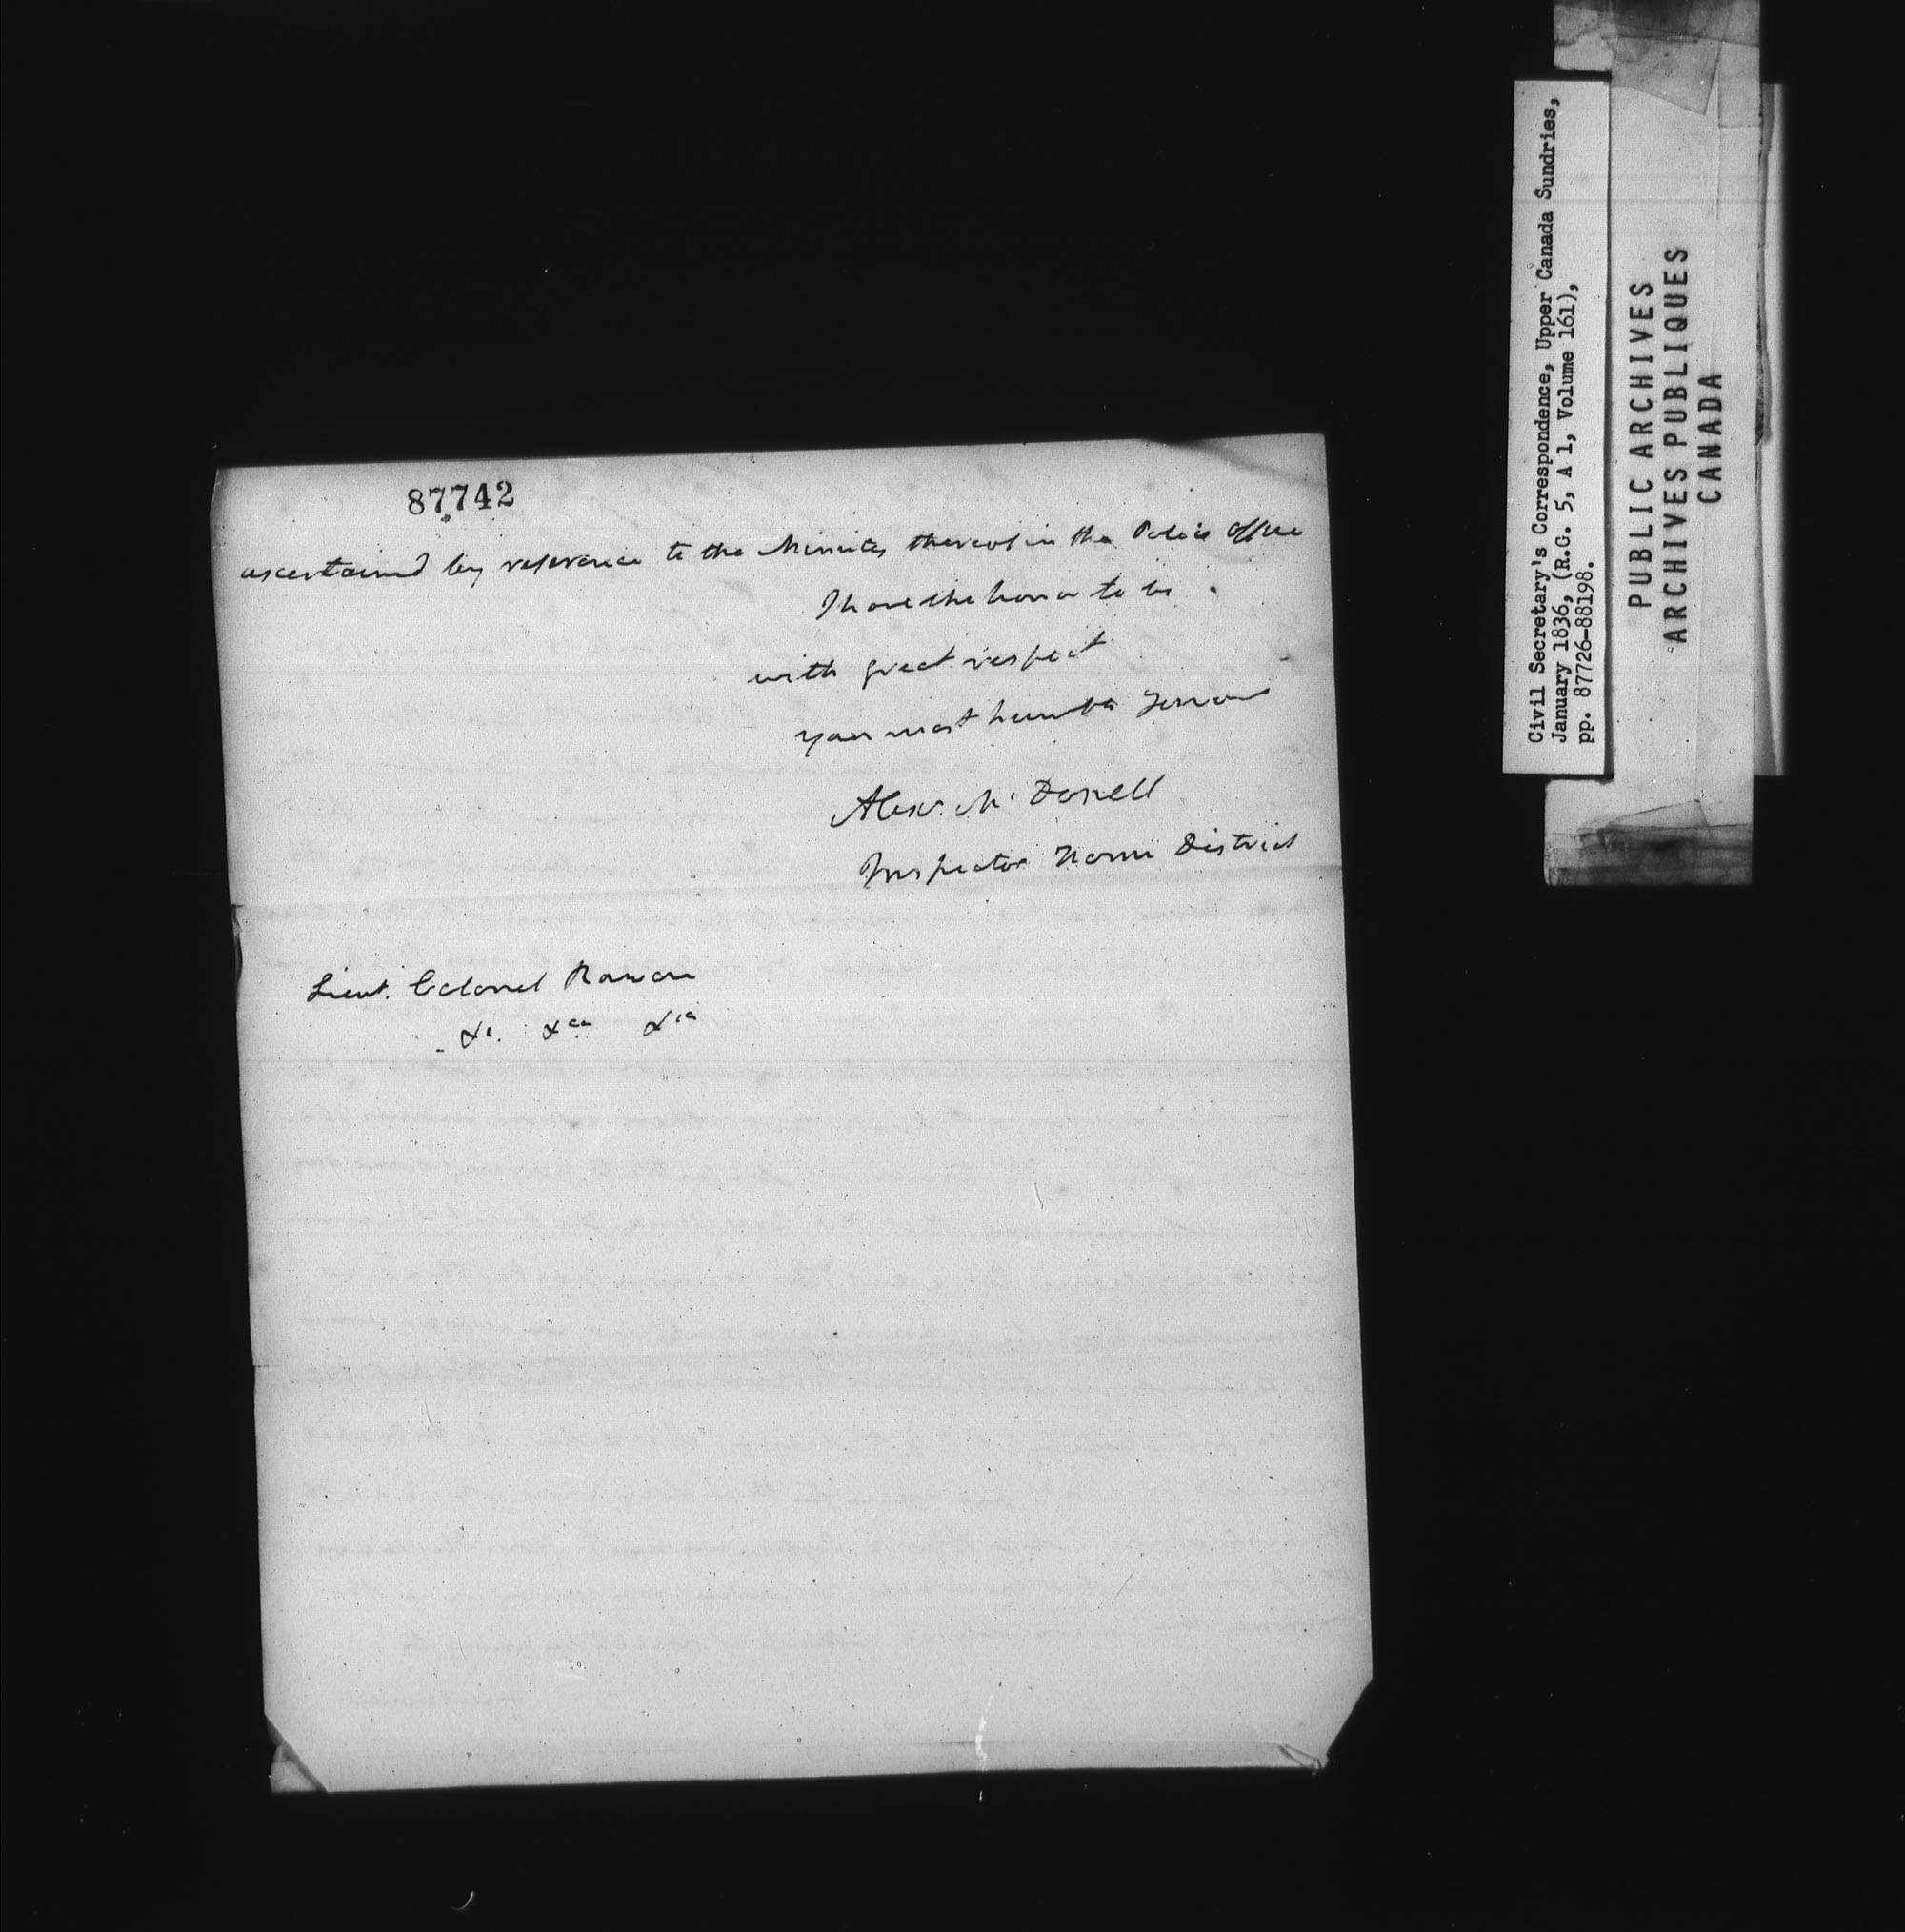 87742
ascertained by reference to the Minutes thereof in the Police Office
I have the honor to be
with great respect
your most humble Servant
Alexr. McDonell
Inspector Home District
Lieut. Colonel Rowan
&c. &ca &ca
Civil Secretary's Correspondence, Upper Canada Sundries,
January 1836, (R.G. 5, A 1, Volume 161),
pp. 87726-88198.
PUBLIC ARCHIVES
ARCHIVES PUBLIQUES
CANADA